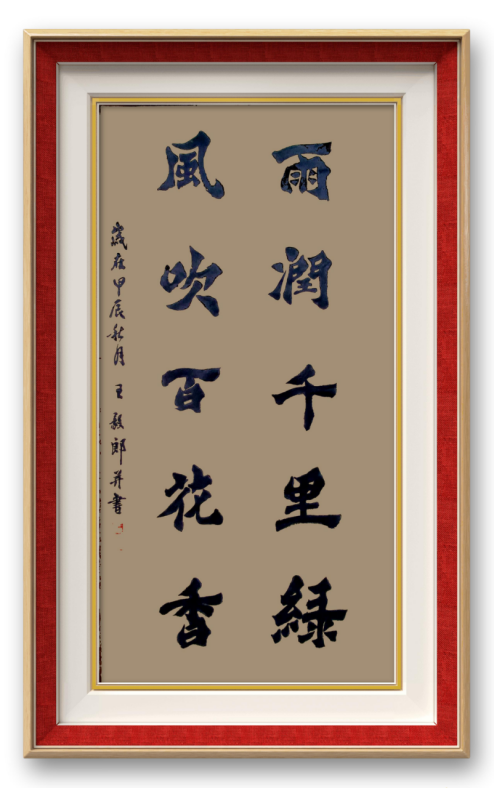 雨潤千里綠
風吹百花香
歲在甲辰秋月 王毅郎并書